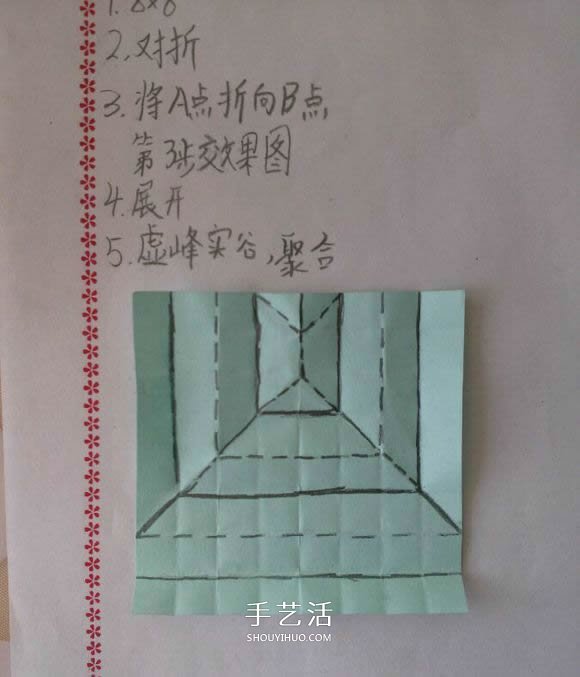 1. 8×8
2. 对折
3. 将A点折向B点
第3步效果图
4. 展开
5. 虚峰实谷,聚合
手艺活
SHOUYIHUO.COM